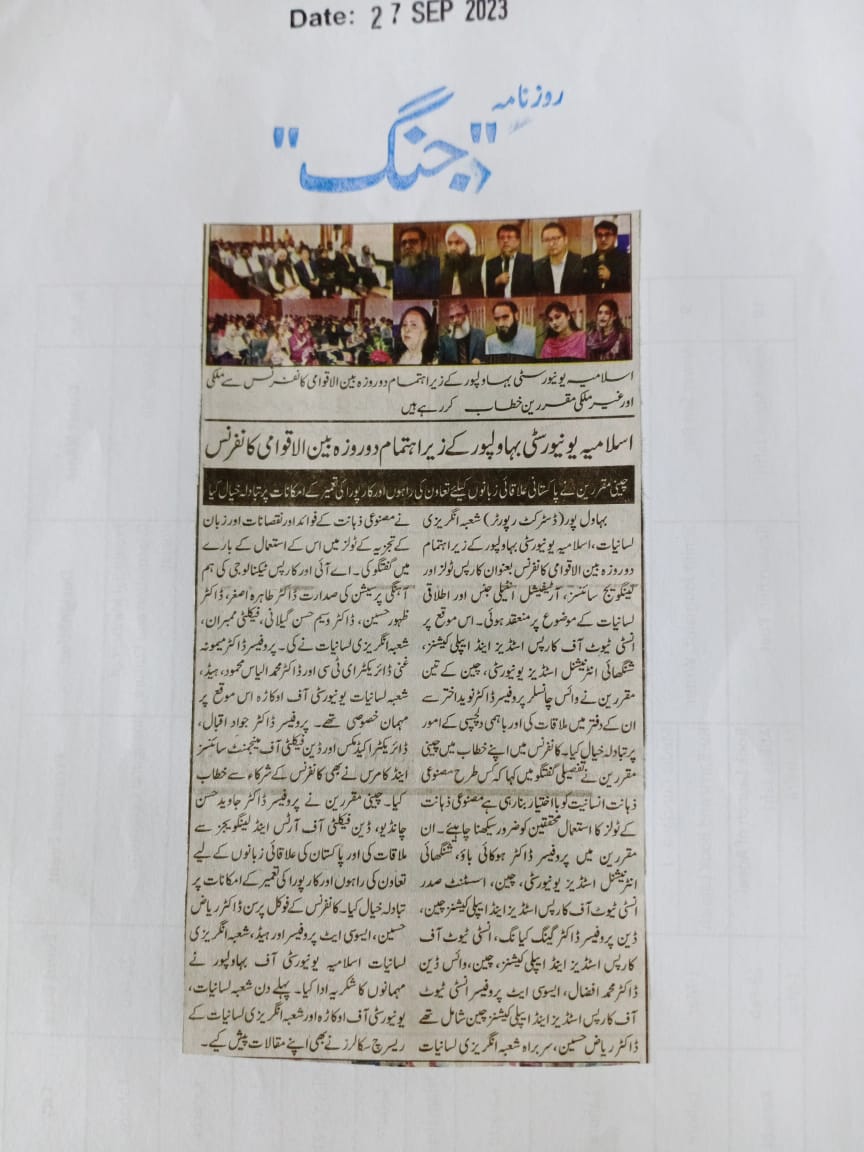 Date: 27 SEP 2023
روزنامہ
"جنگ"
اسلامیہ یونیورسٹی بہاولپور کے زیر اہتمام دو روزہ بین الاقوامی کانفرنس سے ملکی
اور غیر ملکی مقررین خطاب کر رہے ہیں
اسلامیہ یونیورسٹی بہاولپور کے زیر اہتمام دو روزہ بین الاقوامی کانفرنس
چینی مقررین نے پاکستانی علاقائی زبانوں کیلئے تعاون کی راہوں اور کارپورا کی تعمیر کے امکانات پر تبادلہ خیال کیا
بہاول پور (ڈسٹرکٹ رپورٹر) شعبہ انگریزی
لسانیات، اسلامیہ یونیورسٹی بہاولپور کے زیر اہتمام
دو روزہ بین الاقوامی کانفرنس بعنوان کارپس ٹولز اور
لینگویج سائنسز، آرٹیفشل انٹیلی جنس اور اطلاقی
لسانیات کے موضوع پر منعقد ہوئی۔ اس موقع پر
انسٹی ٹیوٹ آف کارپس اسٹڈیز اینڈ ایپلی کیشنز،
شنگھائی انٹرنیشنل اسٹڈیز یونیورسٹی، چین کے تین
مقررین نے وائس چانسلر پروفیسر ڈاکٹر نوید اختر سے
ان کے دفتر میں ملاقات کی اور باہمی دلچسپی کے امور
پر تبادلہ خیال کیا۔ کانفرنس میں اپنے خطاب میں چینی
مقررین نے تفصیلی گفتگو میں کہا کہ کس طرح مصنوعی
ذہانت انسانیت کو با اختیار بنا رہی ہے مصنوعی ذہانت
کے ٹولز کا استعمال محققین کو ضرور سیکھنا چاہیئے۔ ان
مقررین میں پروفیسر ڈاکٹر ہوکائی باؤ، شنگھائی
انٹرنیشنل اسٹڈیز یونیورسٹی، چین، اسسٹنٹ صدر
انسٹی ٹیوٹ آف کارپس اسٹڈیز اینڈ ایپلی کیشنز چین،
ڈین پروفیسر ڈاکٹر گینگ کیانگ، انسٹی ٹیوٹ آف
کارپس اسٹڈیز اینڈ ایپلی کیشنز، چین، وائس ڈین
ڈاکٹر محمد افضال، ایسوسی ایٹ پروفیسر انسٹی ٹیوٹ
آف کارپس اسٹڈیز اینڈ ایپلی کیشنز چین شامل تھے
ڈاکٹر ریاض حسین، سربراہ شعبہ انگریزی لسانیات
نے مصنوعی ذہانت کے فوائد اور نقصانات اور زبان
کے تجزیہ کے ٹولز میں اس کے استعمال کے بارے
میں گفتگو کی۔ اے آئی اور کارپس ٹیکنالوجی کی ہم
آہنگی پر سیشن کی صدارت ڈاکٹر طاہرہ اصغر، ڈاکٹر
ظہور حسین، ڈاکٹر وسیم حسن گیلانی، فیکلٹی ممبران،
شعبہ انگریزی لسانیات نے کی۔ پروفیسر ڈاکٹر میمونہ
غنی ڈائریکٹر ای ٹی سی اور ڈاکٹر محمد الیاس محمود، ہیڈ،
شعبہ لسانیات یونیورسٹی آف اوکاڑہ اس موقع پر
مہمان خصوصی تھے۔ پروفیسر ڈاکٹر جواد اقبال،
ڈائریکٹر اکیڈمکس اور ڈین فیکلٹی آف مینجمنٹ سائنسز
اینڈ کامرس نے بھی کانفرنس کے شرکاء سے خطاب
کیا۔ چینی مقررین نے پروفیسر ڈاکٹر جاوید حسن
چانڈیو، ڈین فیکلٹی آف آرٹس اینڈ لینگویجز سے
ملاقات کی اور پاکستان کی علاقائی زبانوں کے لیے
تعاون کی راہوں اور کارپورا کی تعمیر کے امکانات پر
تبادلہ خیال کیا۔ کانفرنس کے فوکل پرسن ڈاکٹر ریاض
حسین، ایسوسی ایٹ پروفیسر اور ہیڈ، شعبہ انگریزی
لسانیات اسلامیہ یونیورسٹی آف بہاولپور نے
مہمانوں کا شکریہ ادا کیا۔ پہلے دن شعبہ لسانیات،
یونیورسٹی آف اوکاڑہ اور شعبہ انگریزی لسانیات کے
ریسرچ سکالرز نے بھی اپنے مقالات پیش کیے۔